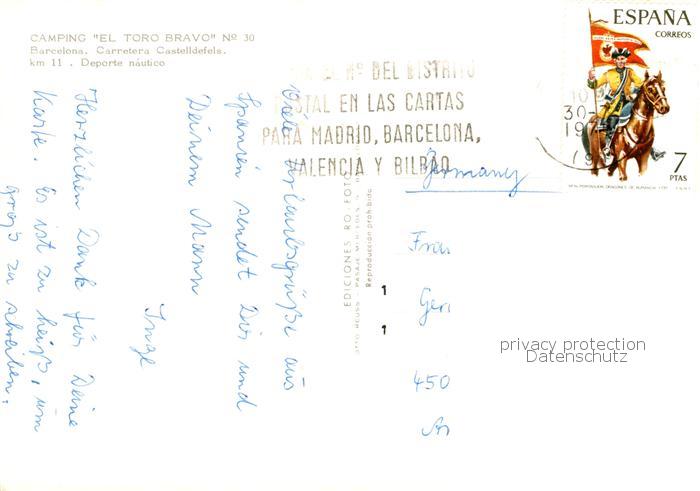 CAMPING "EL TORO BRAVO" Nº 30
Barcelona. Carretera Castelldefels.
km 11 . Deporte náutico
Viele Urlaubsgrüße aus
Spanien sendet Dir und
Deinem Mann
Inge
Herzlichen Dank für Deine
Karte. Es ist zu heiß, um
groß zu schreiben.
Nº DEL DISTRITO
POSTAL EN LAS CARTAS
PARA MADRID, BARCELONA,
VALENCIA Y BILBAO
ESPAÑA
CORREOS
7
PTAS
EDICIONES RO. FOTO
Reproducción prohibida
1
1
Germany
Frau
450
privacy protection
Datenschutz